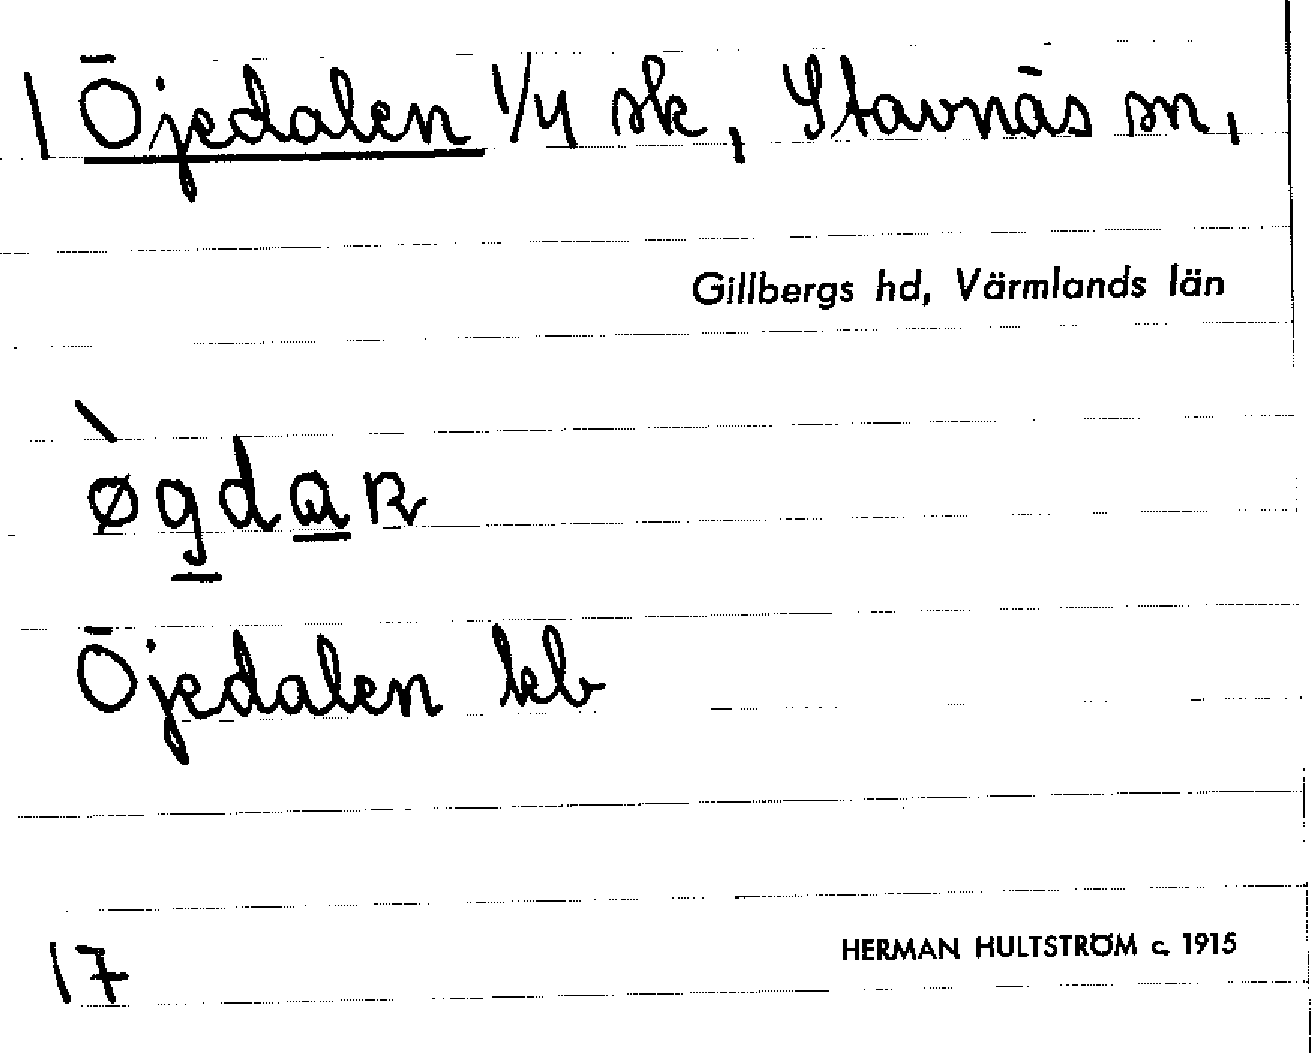 1 Öjedalen 1/4 sk, Stavnäs sn,
Gillbergs hd, Värmlands län
Öjedalen kb
17
HERMAN HULTSTRÖM c. 1915